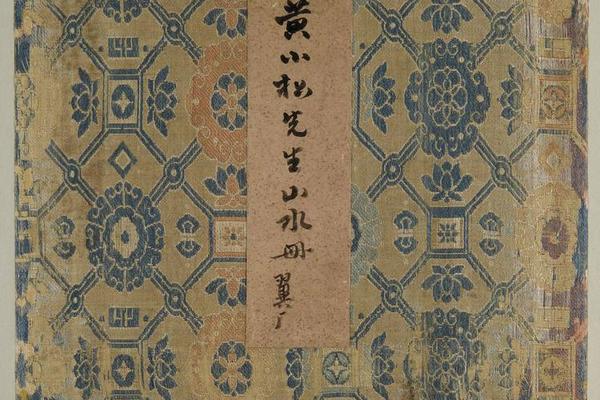 黄小松先生山水册翼厂